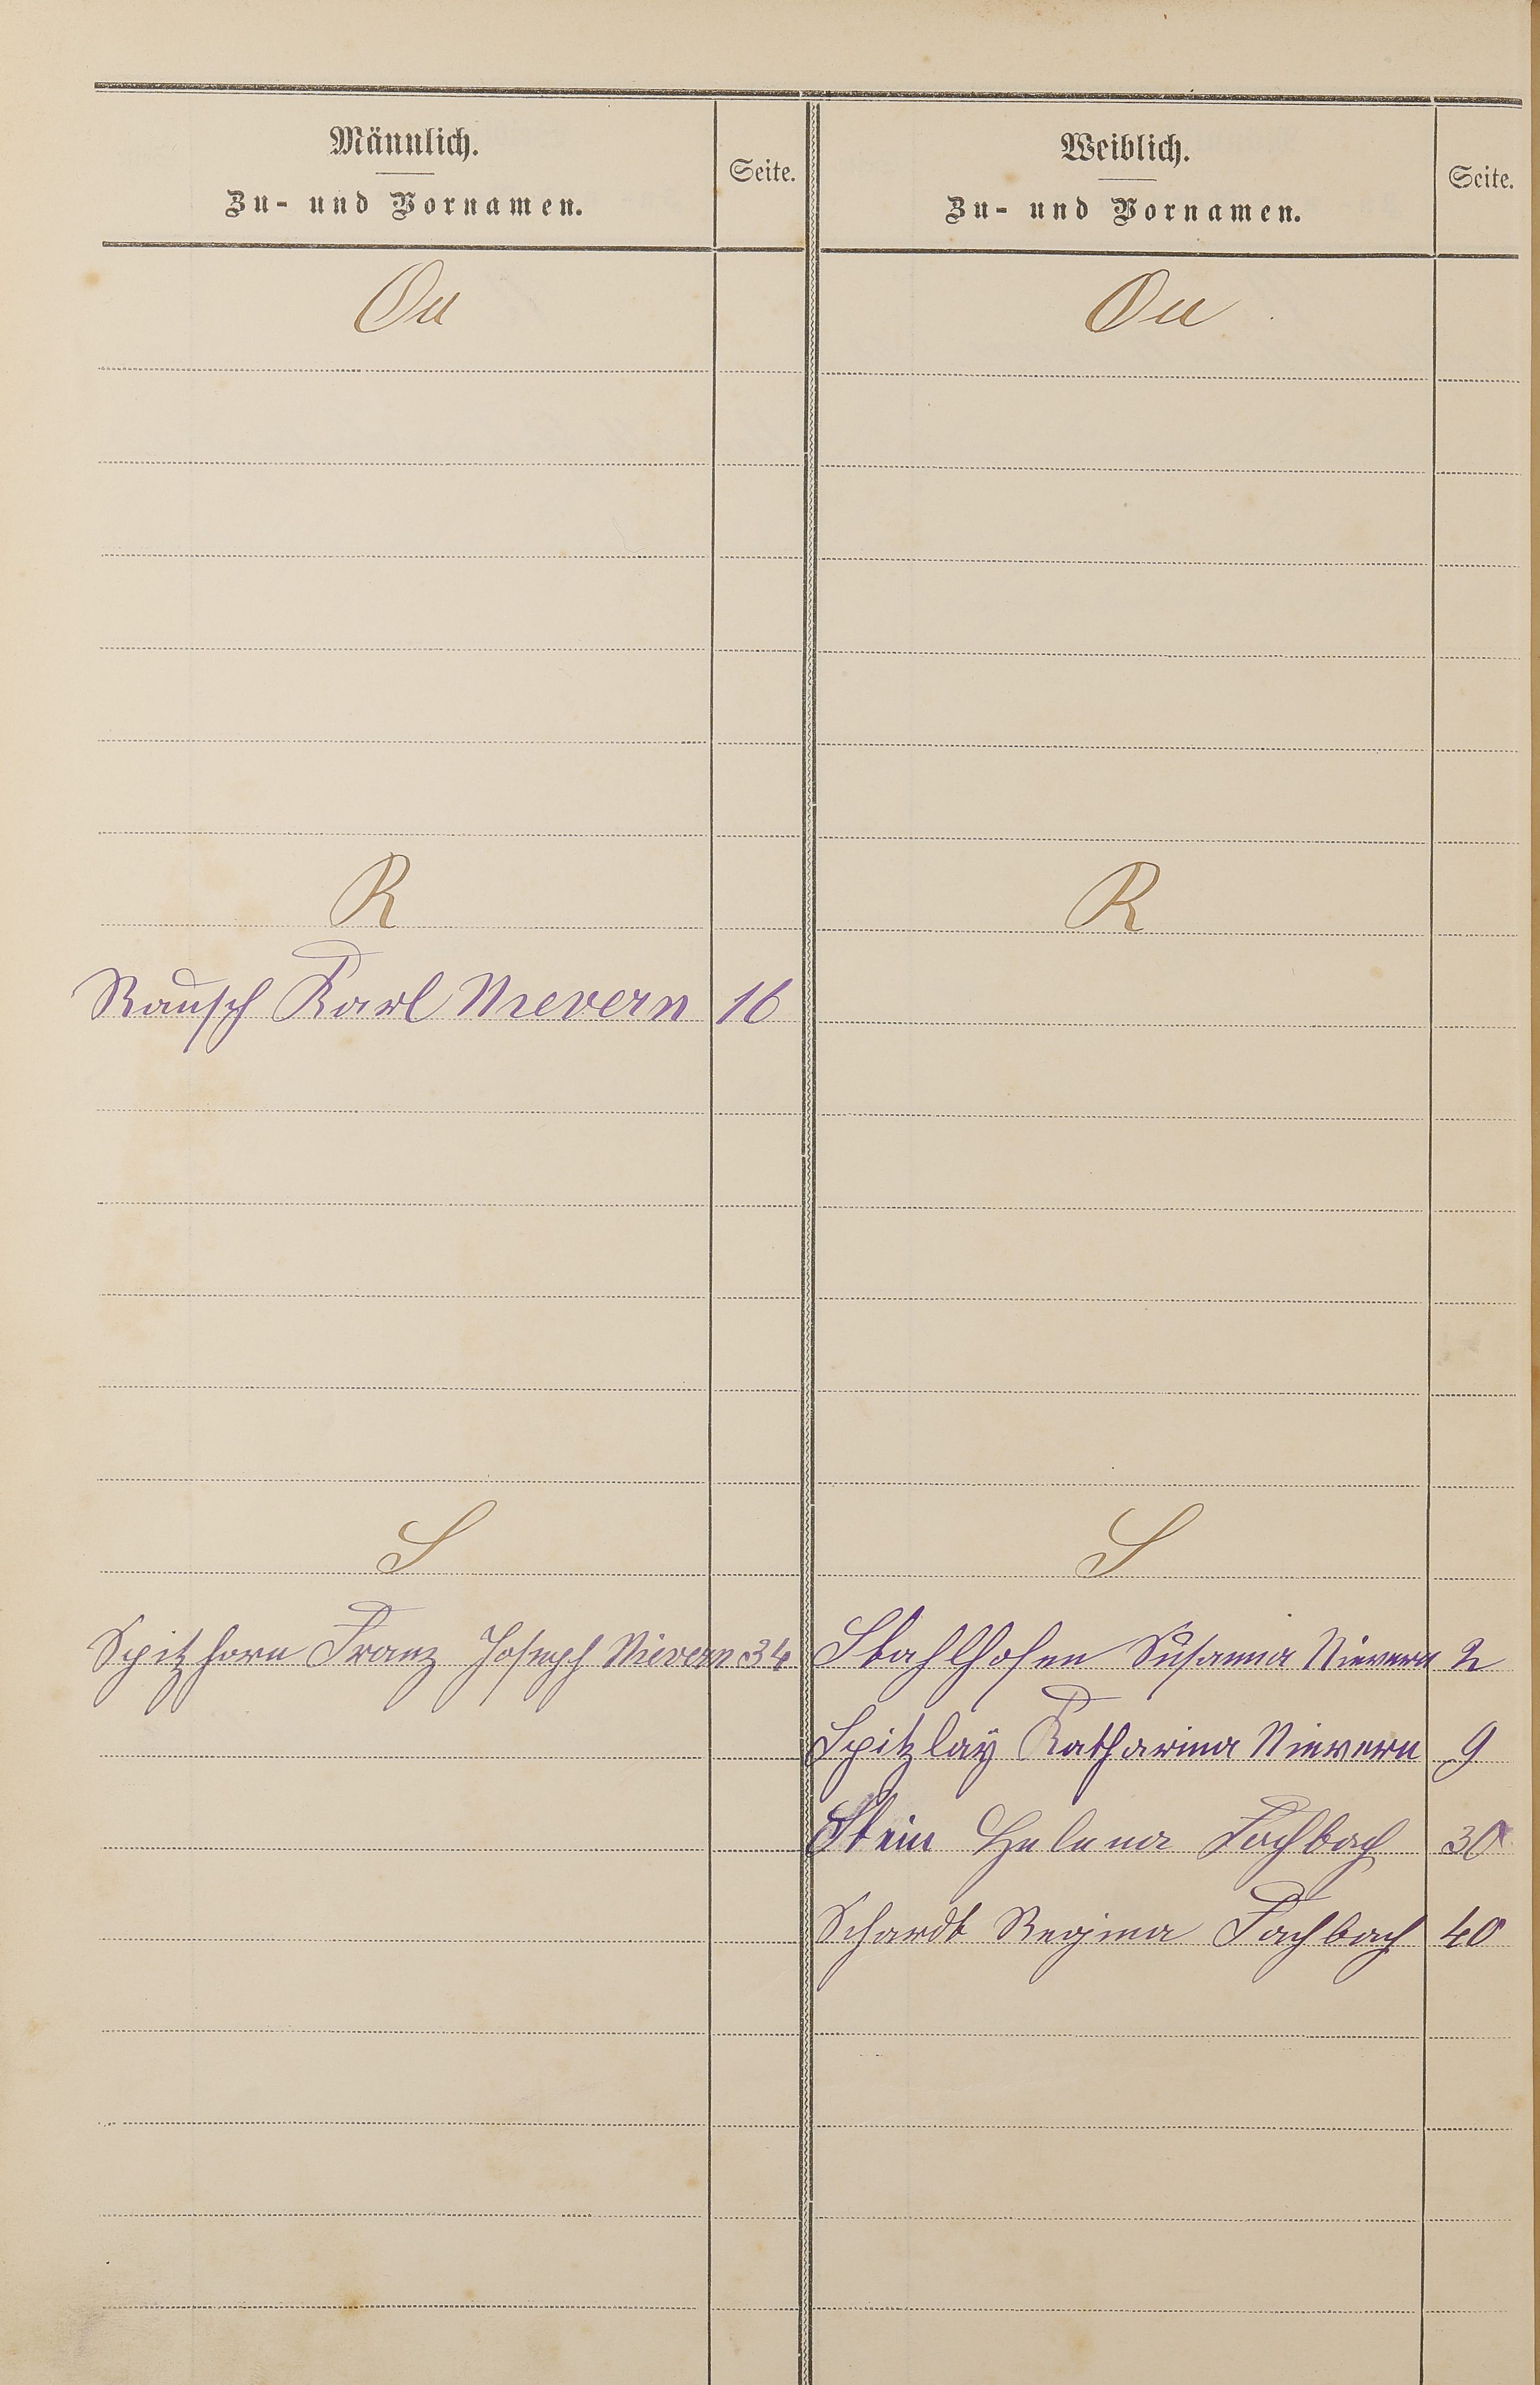 Männlich.
Zu- und Vornamen.
Seite.
Weiblich.
Zu- und Vornamen.
Seite.
Qu
Qu
R
R
Rausch Karl Nievern 16
S
S
Spitzhorn Franz Joseph Nievern 34
Stahlhofen Susanna Nievern 2
Spitzlay Katharina Nievern 9
Stein Helena Fachbach 30
Schardt Regina Fachbach 40